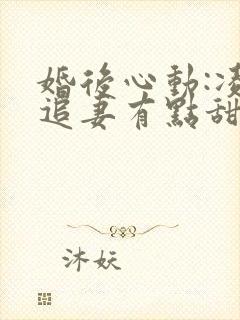 婚後心動:凌
追妻有點甜
沐妖